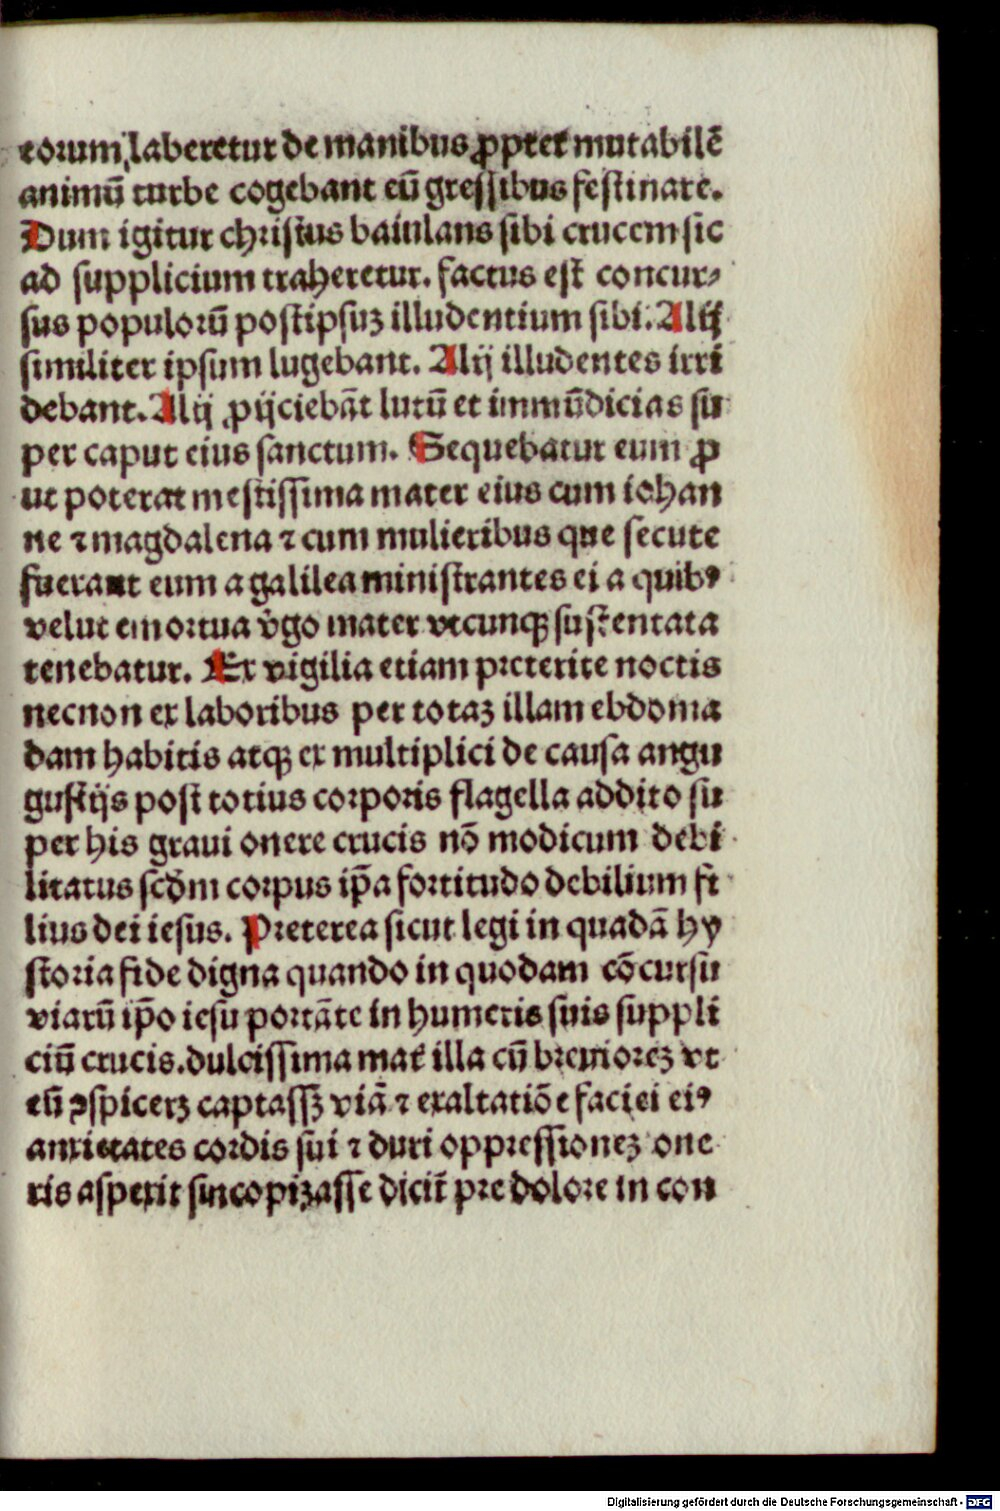 eorum laberetur de manibus ꝓpter mutabilē
animū turbe cogebant eū gressibus festinare.
Dum igitur christus baiulans sibi crucem sic
ad supplicium traheretur. factus est concur⸗
sus populorū post ipsuꝫ illudentium sibi. Alij
similiter ipsum lugebant. Alij illudentes irri
debant. Alij ꝓijciebāt lutū et immūdicias su
per caput eius sanctum. Sequebatur eum ꝓ
ut poterat mestissima mater eius cum iohan
ne ⁊ magdalena ⁊ cum mulieribus que secute
fuerant eum a galilea ministrantes ei a quibꝰ
velut emortua v̓go mater vtcunqꝫ sustentata
tenebatur. Ex vigilia etiam preterite noctis
necnon ex laboribus per totaꝫ illam ebdoma
dam habitis atqꝫ ex multiplici de causa angu
gustijs post totius corporis flagella addito su
per his graui onere crucis nō modicum debi
litatus scd̄m corpus ip̄a fortitudo debilium fi
lius dei iesus. Preterea sicut legi in quadā hy
storia fide digna quando in quodam cōcursu
viarū ip̄o iesu portāte in humeris suis suppli
ciū crucis. dulcissima mat̄ illa cū breuioreꝫ vt
eū ꝯspiceꝫ captassꝫ viā ⁊ exaltatiōe faciei eiꝰ
anxietates cordis sui ⁊ duri oppressioneꝫ one
ris asperit sincopizasse dicit̄ pre dolore in con
Digitalisierung gefördert durch die Deutsche Forschungsgemeinschaft - DFG